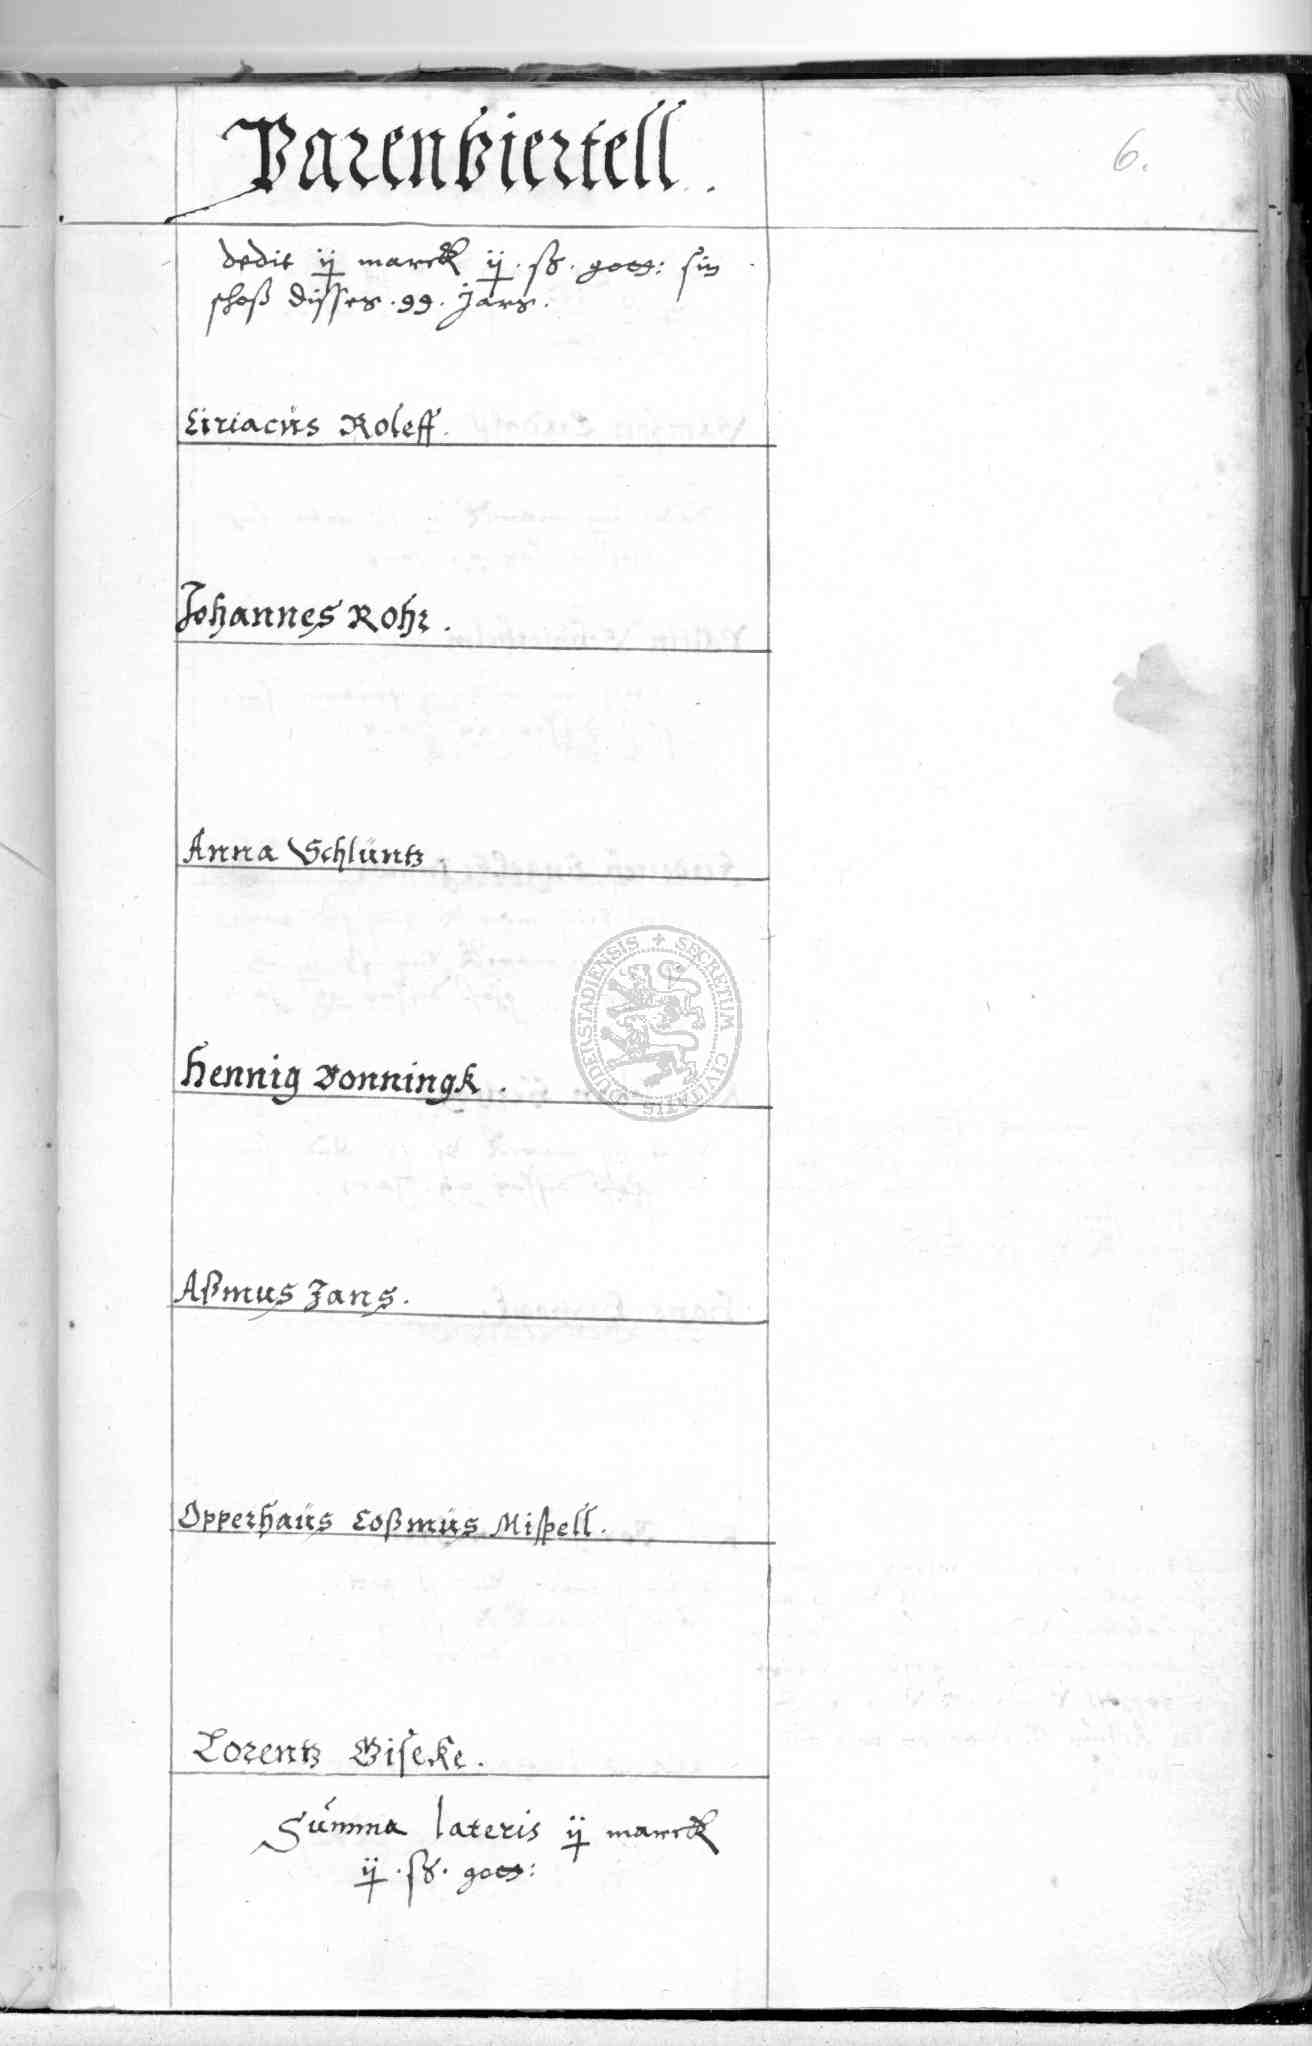 Barenviertell.
6.
dedit ij marck ij. ß. gott: sin
schoß disses. 99. Jars.
Ciriacus Roleff.
Johannes Rohr.
Anna Schlüntz
Hennig Bonningk.
Aßmus Jans.
Opperhaus Coßmus Mispell.
Lorentz Giseke.
Summa lateris ij marck
ij. ß. gott:
SECRETUM CIVITATIS DUDERSTADIENSIS